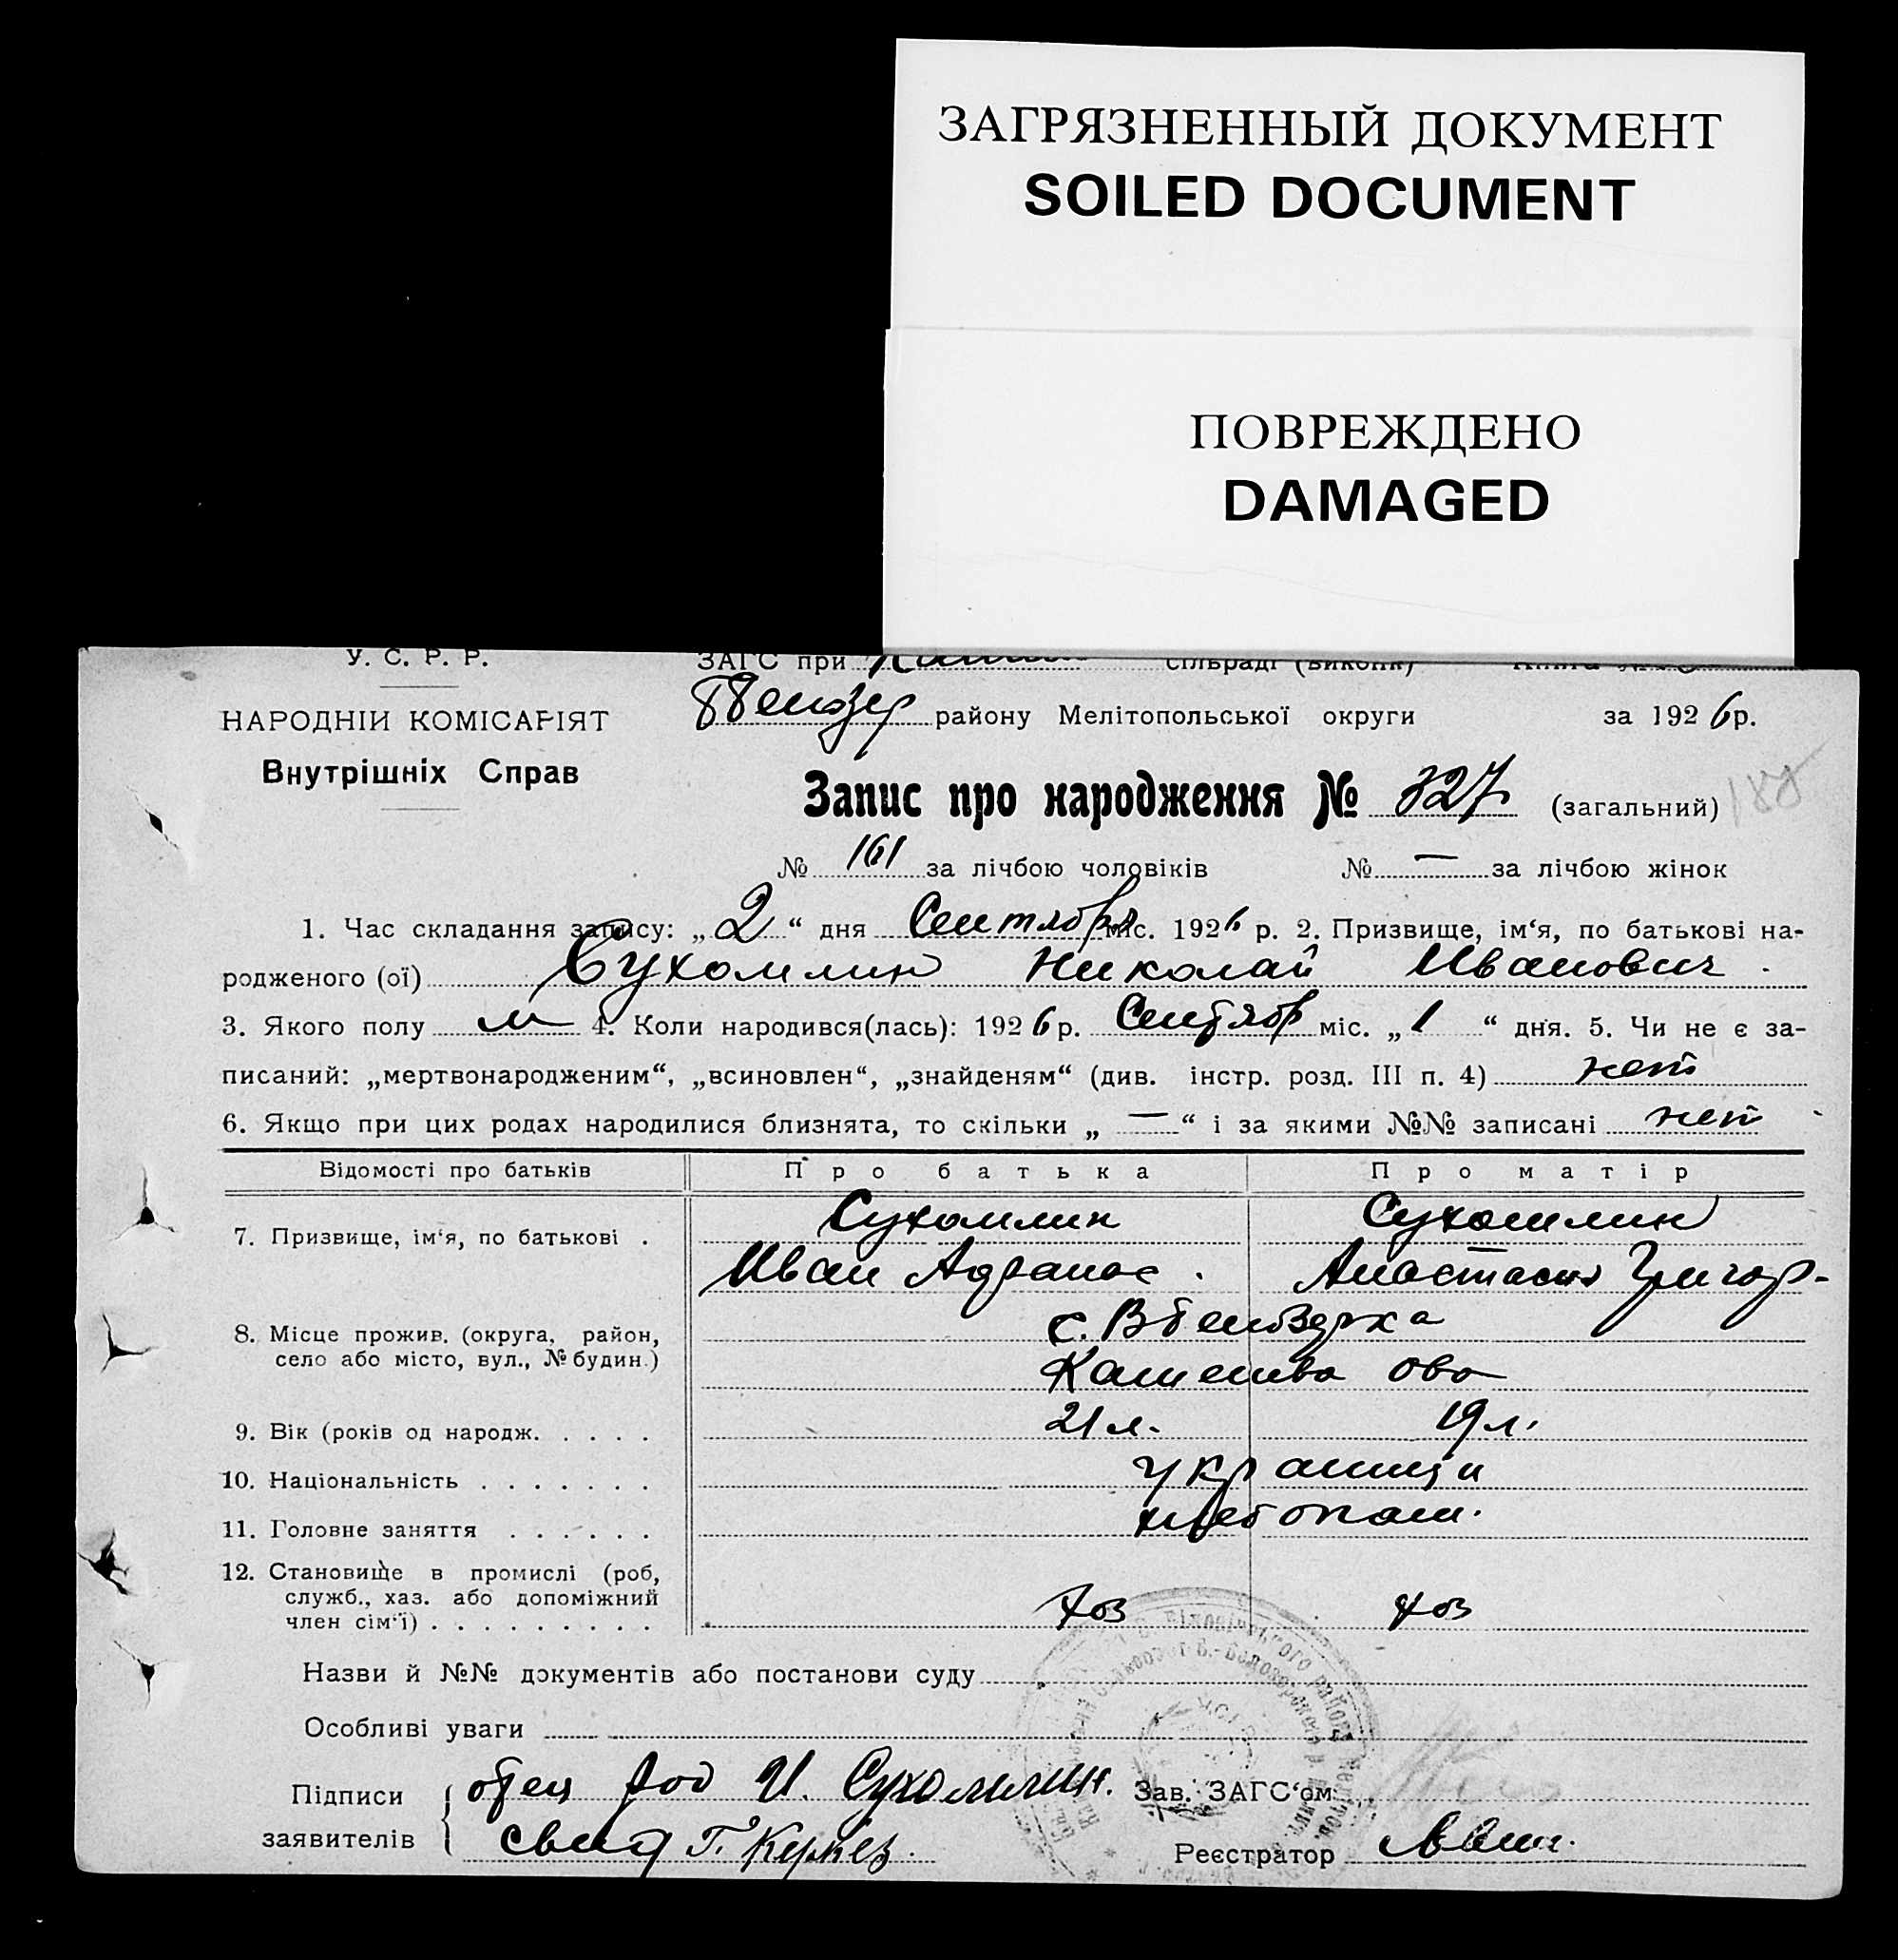 ЗАГРЯЗНЕННЫЙ ДОКУМЕНТ
SOILED DOCUMENT
ПОВРЕЖДЕНО
DAMAGED
У. С. Р. Р.
ЗАГС при сільраді (виконк)
НАРОДНІЙ КОМІСАРІЯТ
Внутрішніх Справ
району Мелітопольської округи за 1926 р.
Запис про народження № 327 (загальний)
188
№ 161 за лічбою чоловіків № — за лічбою жінок
1. Час складання запису: „2“ дня Сентября міс. 1926 р. 2. Призвище, ім‘я, по батькові на-
родженого (ої) Сухомлин Николай Иванович.
3. Якого полу м 4. Коли народився(лась): 1926 р. Сентябр міс. „1“ дня. 5. Чи не є за-
писаний: „мертвонародженим“, „всиновлен“, „знайденям“ (див. інстр. розд. III п. 4) нет
6. Якщо при цих родах народилися близнята, то скільки „—“ і за якими №№ записані нет
Відомості про батьків Про батька Про матір
7. Призвище, ім‘я, по батькові . Сухомлин Сухомлин
Иван Афанас. Анастасия Григор-
8. Місце прожив. (округа, район,
село або місто, вул., № будин.)
9. Вік (років од народж. . . . . . 21 л. 19 л.
10. Національність . . . . . . . украинци
11. Головне заняття . . . . . . хлебопаш.
12. Становище в промислі (роб,
служб., хаз. або допоміжний
член сім‘ї) . . . . . . . . . хоз хоз
Назви й №№ документів або постанови суду
Особливі уваги
Підписи
заявителів
отец И. Сухомлин. Зав. ЗАГС‘ом
свид Г.
Реєстратор